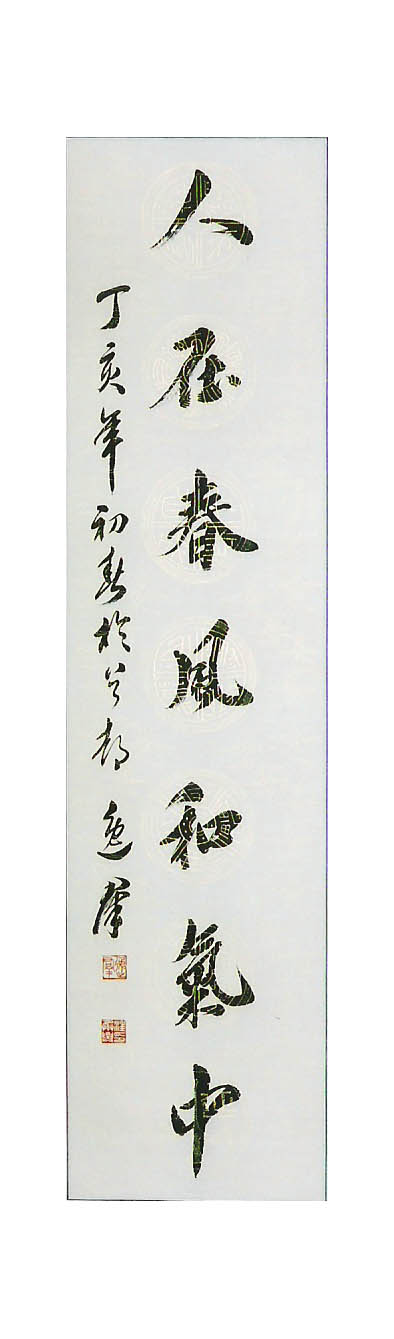 人在春風和氣中
丁亥年初春於都 逸群